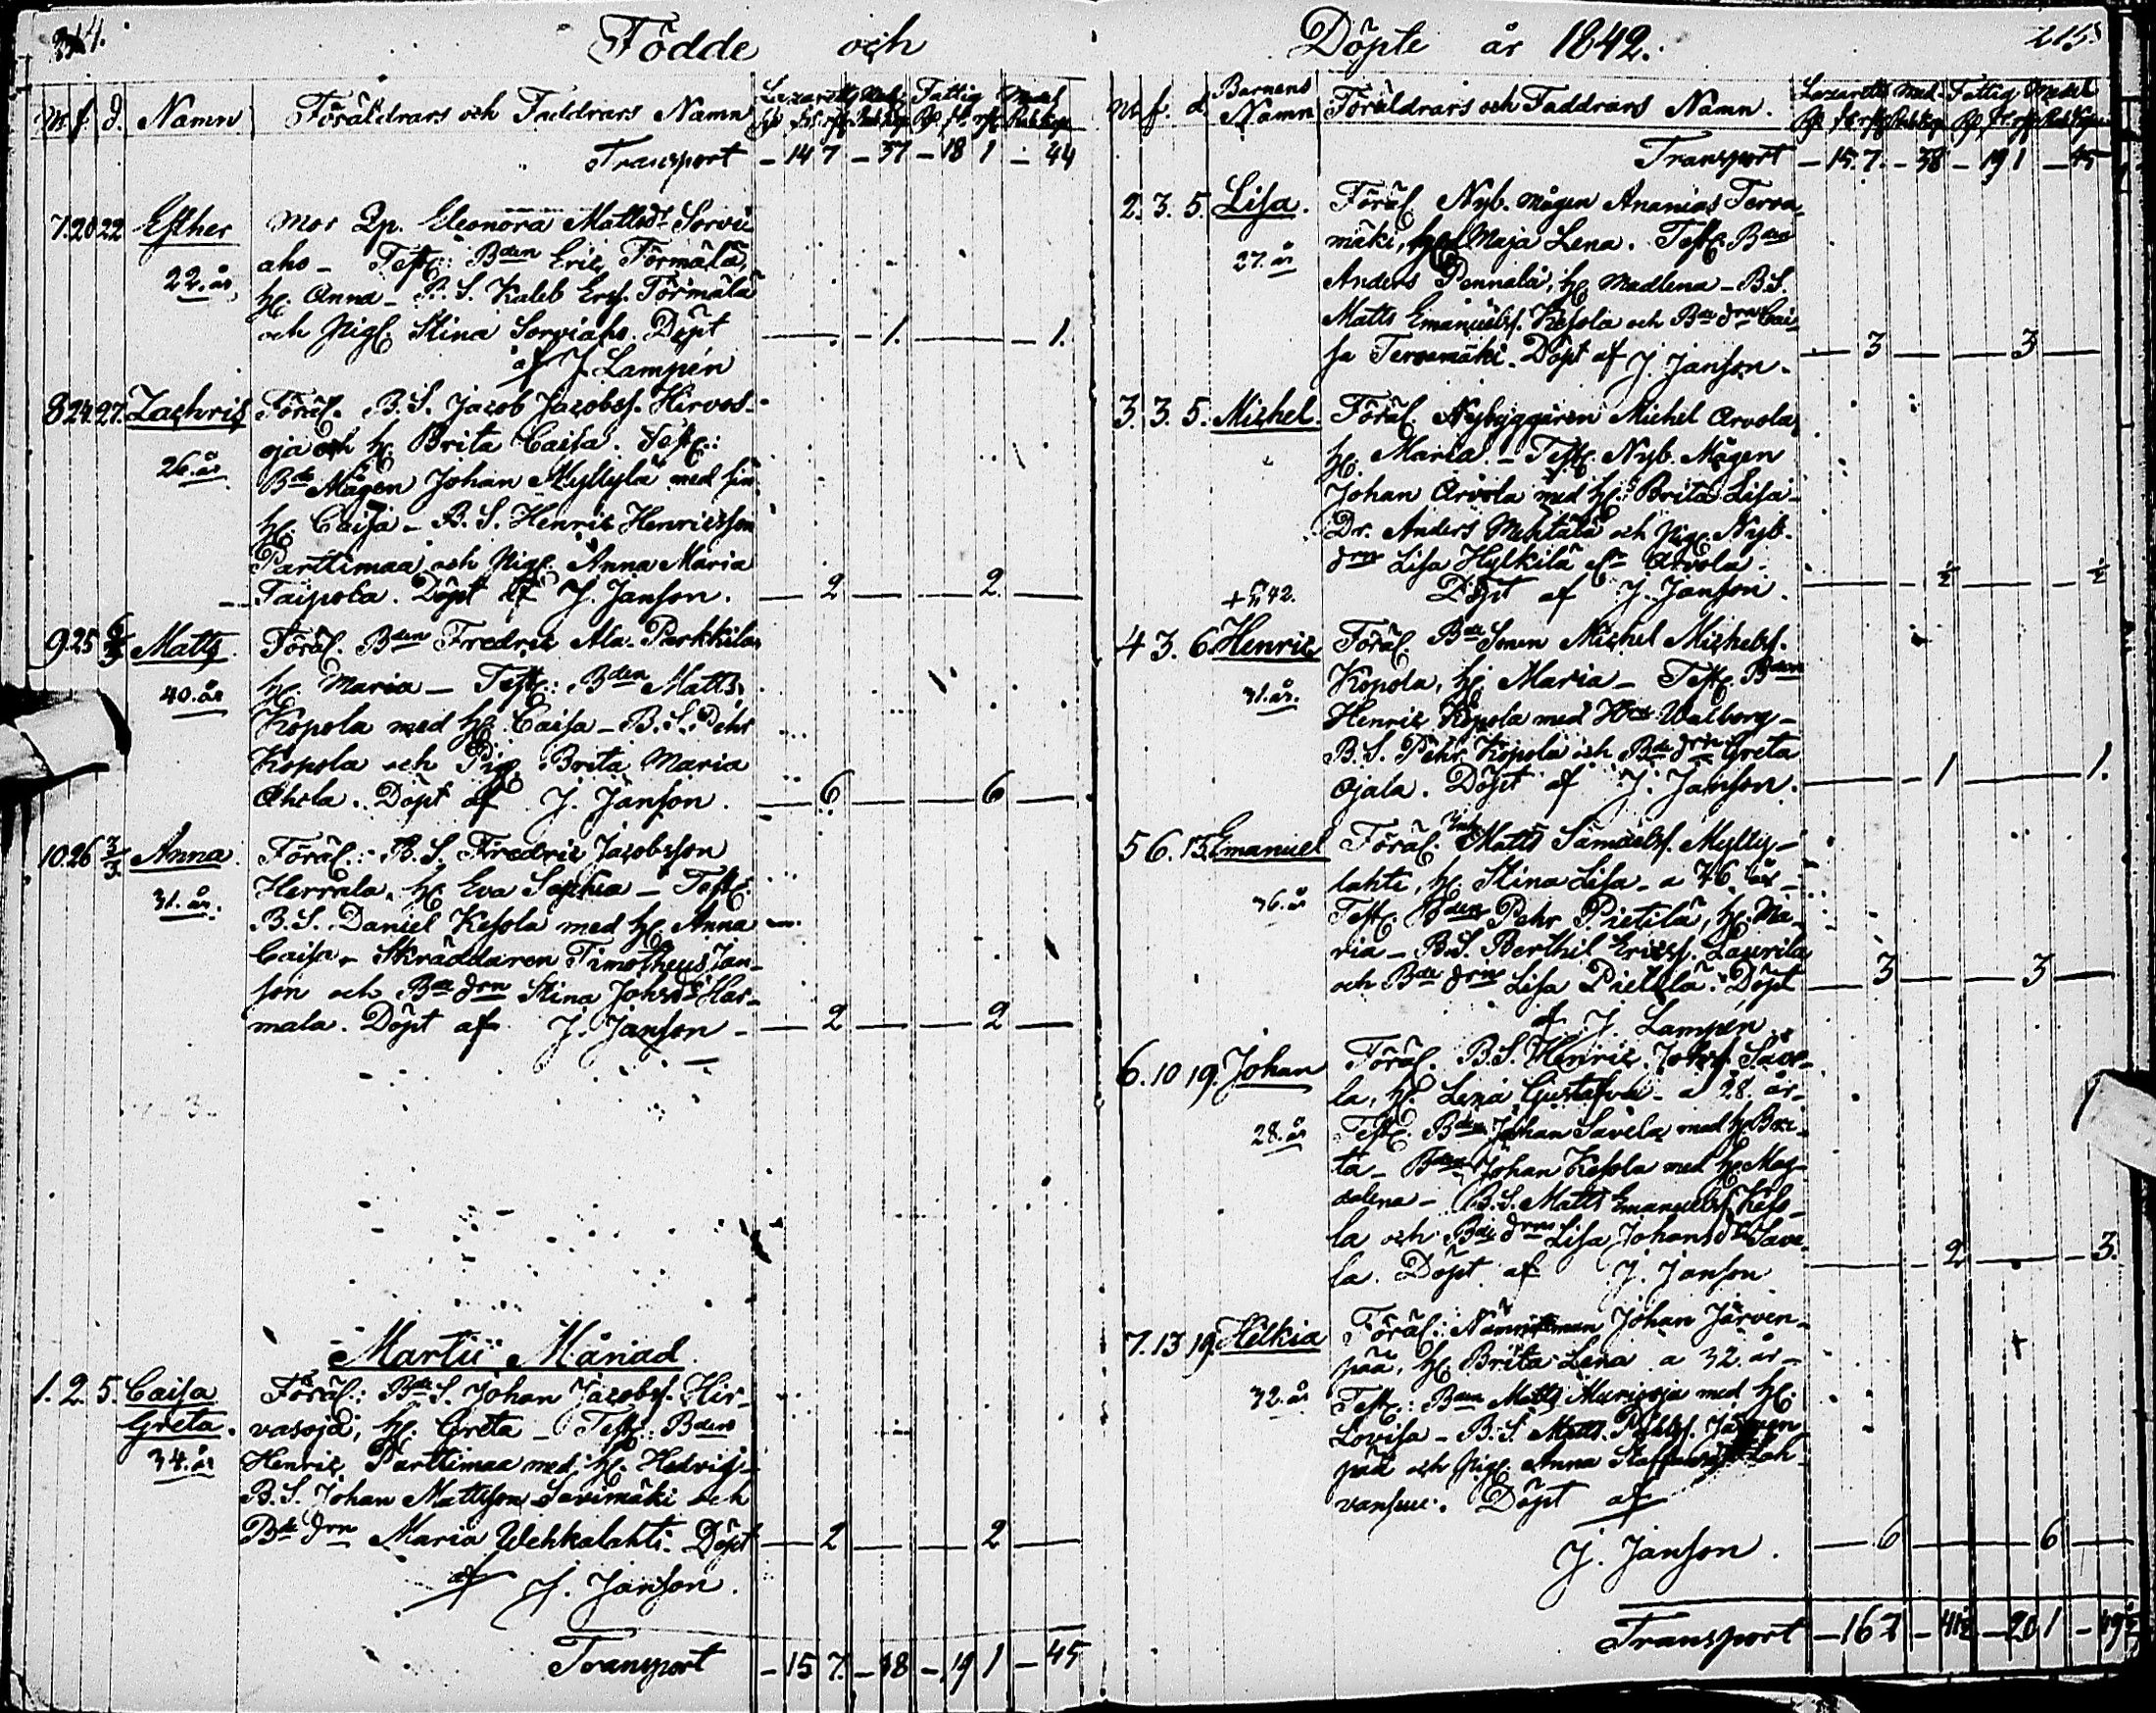 314.
Födde och
N: f. d. Namn Föräldrars och Faddrars Namn Lazaretts Med. Fattig Medel
Transport - 14 7 - 37 - 18 1 - 44
7. 20 22 Esther Mor Qp. Eleonora Mattsdr Sorvi
aho - Test: Bden Eric Törmälä,
22. år hu. Anna - B. S. Kaleb Ersf. Törmälä
och Pig. Stina Sorviaho. Döpt 1. 1.
af J. Lampén
8 24. 27. Zachris Föräl. B. S. Jacob Jacobsf. Hirvas-
oja och hu. Brita Caisa. Test:
26. år Bde Mågen Johan Myllylä med sin
hu. Caisa - B. S. Henric Henricsson
Parttimaa och Pig. Anna Maria
Taipola. Döpt af J. Janson. 2 2
9. 25 6/3 Matts. Föräl. Bden Fredric Ala-Parkkila
40. år hu. Maria - Test: Bden Matts
Kopola med hu. Caisa - B. S. Pehr
Kopola och Pig. Brita Maria
Ahola. Döpt af J. Janson. 6 6
10. 26 3/3 Anna. Föräl.: B. S. Fredric Jacobsson
31. år. Herrala, hu. Eva Sophia - Test.
B. S. Daniel Kesola med hu. Anna
Caisa - Skräddaren Timotheus Jan-
son och Bde drn Stina Johsdr Har-
mala. Döpt af J. Janson - 2 2
Martii Månad.
1. 2. 5. Caisa Föräl.: Bde S. Johan Jacobsf. Hir-
Greta. vasoja, hu. Greta - Test: Bden
34. år Henric Parttimaa med hu. Hedvig -
B. S. Johan Mattsson Savimäki och
Bde drn Maria Wehkalahti. Döpt 2 2
af J. Janson.
Transport - 15 7. - 38 - 19 1 - 45
Döpte år 1842. 215.
N: f. d. Barnens Namn Föräldrars och Faddrars Namn. Lazaretts Med. Fattig Medel
Transport - 15. 7. - 38 - 19 1 - 45
2. 3. 5. Lisa. Föräl. Nyb. mågen Ananias Terva-
27. år mäki, hu. Maja Lena. Test. Bden
Anders Pennala, hu. Madlena - B. S.
Matts Emanuelsf. Kesola och Bde drn Cai-
sa Tervamäki. Döpt af J. Janson. 3 3
3. 3. 5. Michel. Föräl. Nybyggaren Michel Arvola,
hu. Maria. - Test. Nyb. Mågen
Johan Arvola med hu. Brita Lisa -
Dr. Anders Mehtälä och Pig. Nyb.
drn Lisa Hylkilä Arvola.
42. Döpt af J. Janson. ½ ½
4 3. 6. Henric Föräl. Bde Sonen Michel Michelsf.
31. år. Kopola, hu. Maria - Test. Bden
Henric Kopola med Walborg -
B. S. Pehr Kopola och Bde drn Greta
Ojala. Döpt af J. Janson. 1 1.
5 6. 13. Emanuel Föräl. Matts Samuelsf. Mylly-
lahti, hu. Stina Lisa - a 36 år -
36. år Test. Bden Pehr Pietilä, hu. Ma-
ria - B. S. Berthil Ericsf. Laurila
och Bde drn Lisa Pietilä. Döpt 3 3
af J. Lampén
6. 10 19. Johan Föräl. B. S. Henric Johsf. Save-
la, hu. Lena Gustafva - a 28. år -
28. år Test. Bden Johan Savela med hu. Bri-
ta - Bden Johan Kesola med hu. Mag-
dalena - B. S. Matts Emanuelsf. Keso-
la och Bde drn Lisa Johansdr Save-
la. Döpt af J. Janson 2 3.
7. 13 19. Hilkia Föräl.: Nämndeman Johan Järven-
pää, hu. Brita Lena a 32. år -
32. år Test.: Bden Matts med hu.
Lovisa - B. S. Matts Järven
pää och Pig. Anna
Döpt af
J. Janson. 6 6
Transport - 16 7 - 41½ - 20 1 - 49½